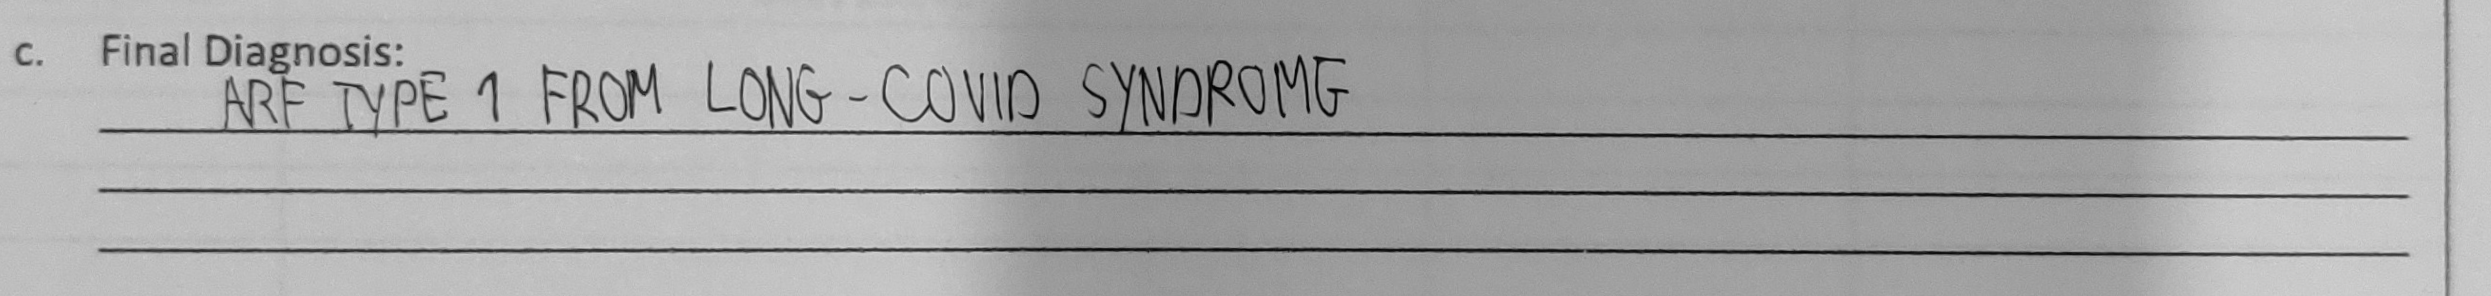 c. Final Diagnosis:
ARF TYPE 1 FROM LONG-COVID SYNDROME